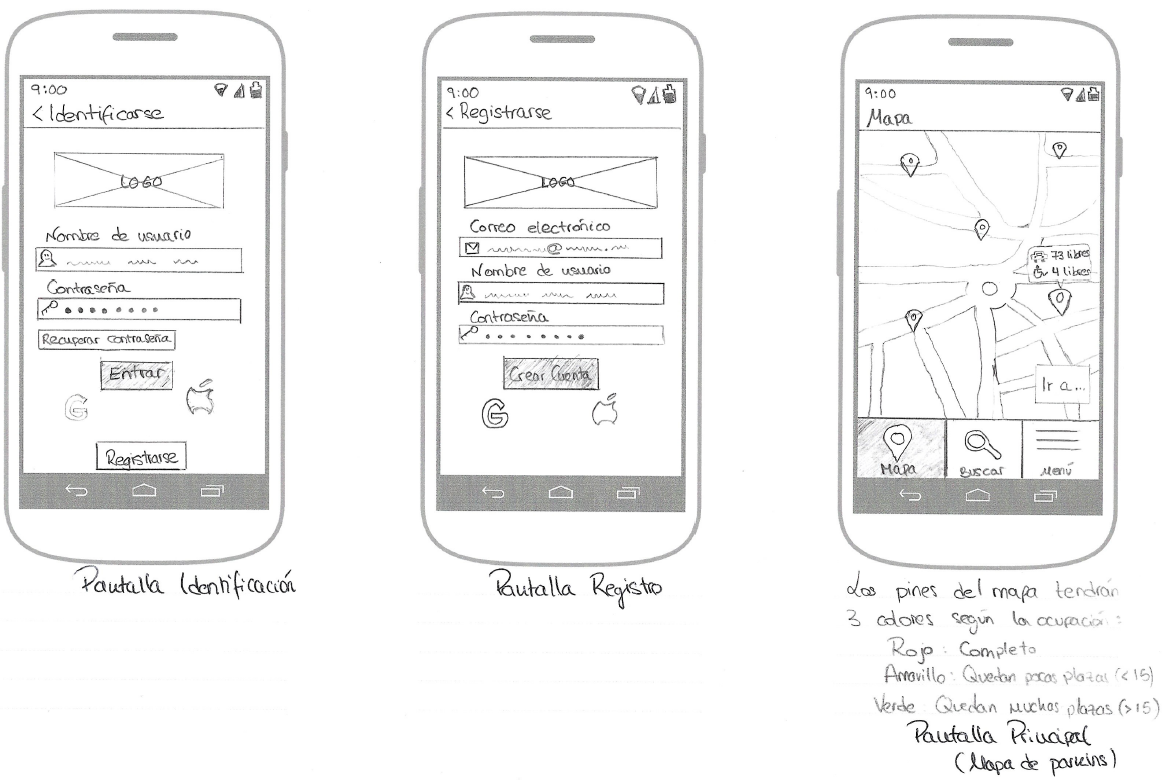 9:00
< Identificarse
LOGO
Nombre de usuario
Contraseña
Recuperar contraseña
Entrar
G
Registrarse
Pantalla Identificación
9:00
< Registrarse
LOGO
Correo electrónico
@
Nombre de usuario
Contraseña
Crear Cuenta
G
Pantalla Registro
9:00
Mapa
73 libres
4 libres
Ir a...
Mapa
Buscar
Menú
Los pines del mapa tendrán
3 colores según la ocupación:
Rojo: Completo
Amarillo: Quedan pocas plazas (<15)
Verde: Quedan muchas plazas (>15)
Pantalla Principal
(Mapa de parkins)